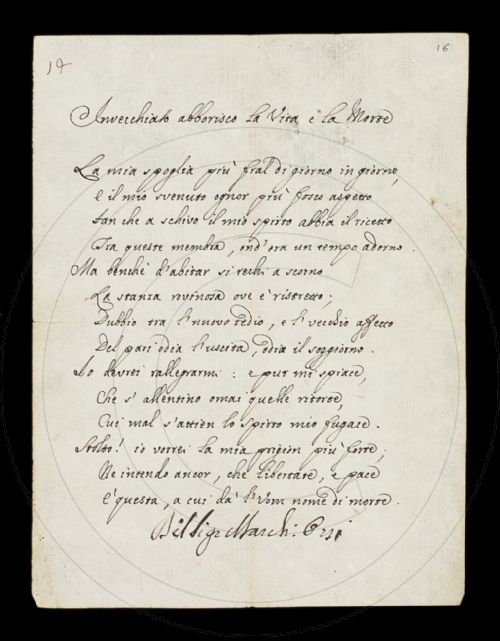 19
16
Invecchiato abborisco la Vita e la Morte
La mia spoglia più fral' di giorno in giorno,
E il mio svenuto ognor più fosco aspetto
Fan che a schivo il mio spirto abbia il ricetto
Tra queste membra, ond'ora un tempo adorno.
Ma benche d'abitar si rechi a scorno
La stanza rovinosa ove è ristretto;
Dubbio tra l'nuovo tedio, e l'vecchio affetto
Del pari odia l'uscita, odia il soggiorno.
Io devrei rallegrarmi: e pur mi spiace,
Che s'allentino omai quelle ritorte,
Cui mal s'attien lo spirto mio fugace.
Stolto! io vorrei la mia prigion più forte;
Ne intendo ancor, che libertate, e pace
E' questa, a cui dà l'Uom nome di morte.
Del Sigr March: Orsi